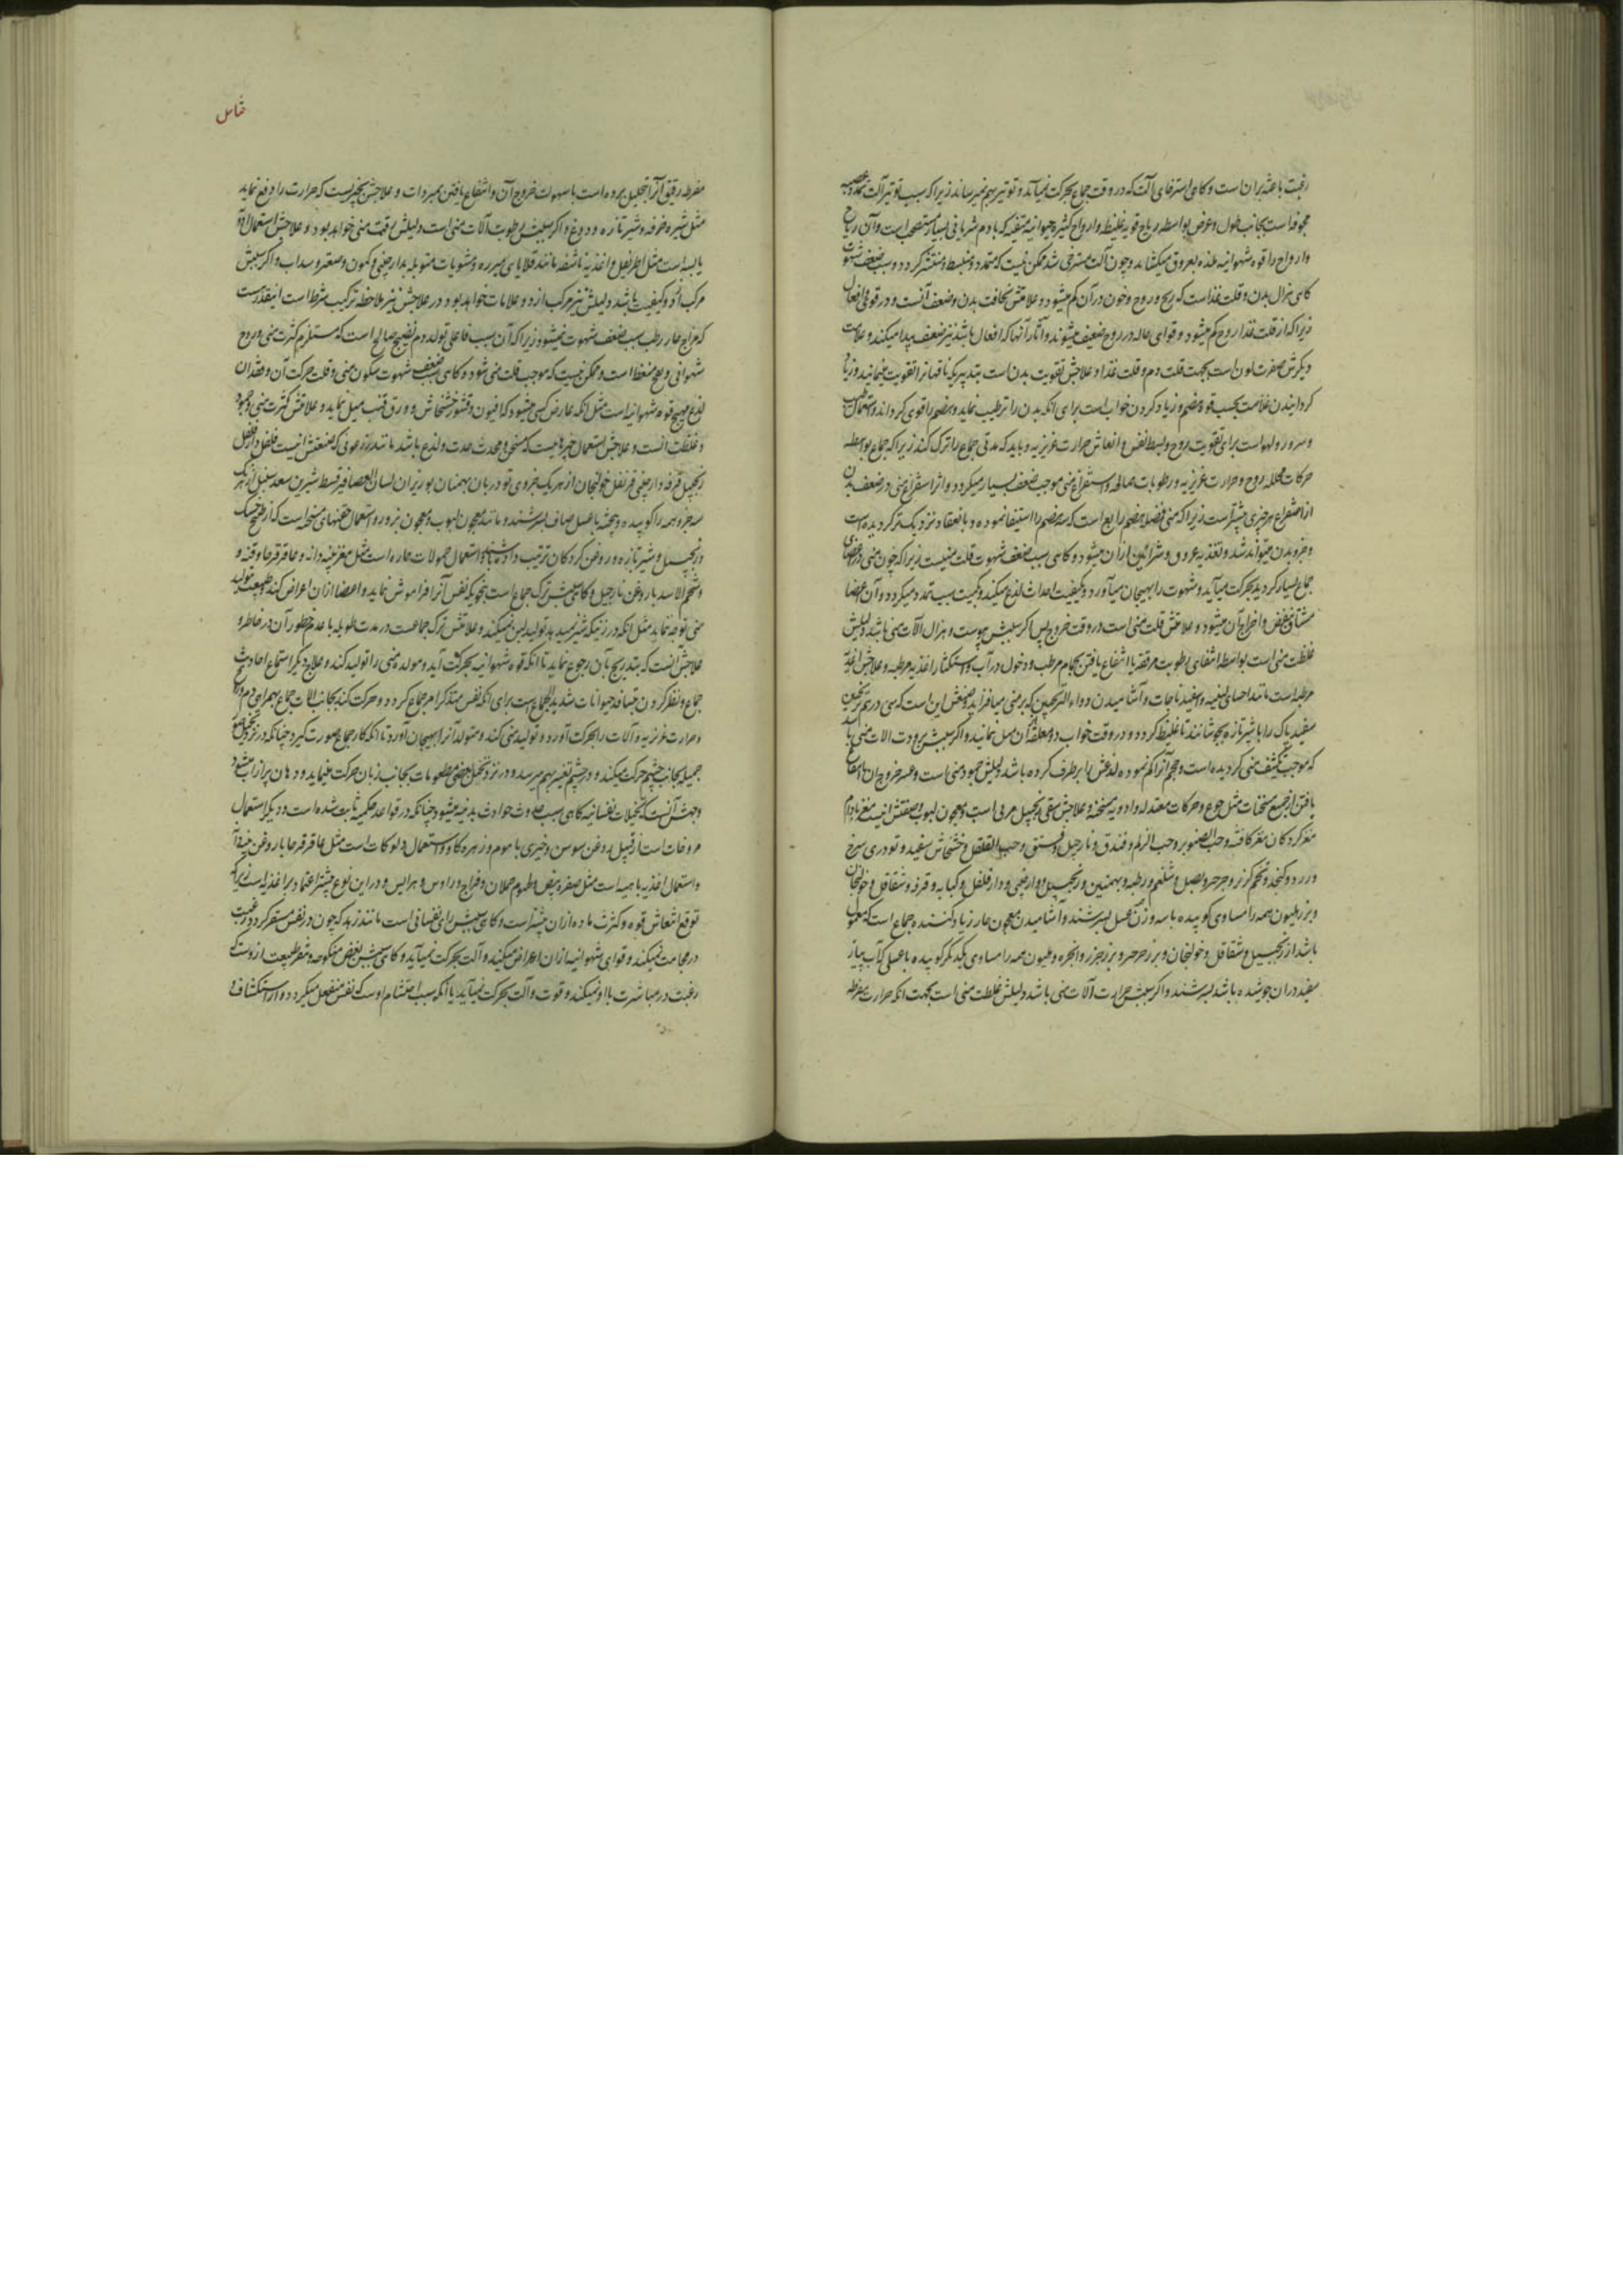 رغبت باعث بران است و کاهی استرخای آلت که در وقت جماع بحرکت نمیآید و توتیر بهم نمیرساند زیرا که سبب توتیر آلت تمدد عصب
مجوفه است بجانب طول و عرض بواسطه ریاح قویه غلیظه و ارواح کثیره حیوانیه متفیه که با دم شریانی بسیار مستصحب است و آن ریاح
و ارواح را قوه شهوانیه ملذه بعروق میکشاند و چون آلت مسترخی شد ممکن نیست که متمدد و منبسط و منتشر کردد و سبب ضعف شهوت
کاهی هزال بدن و قلت غذاست که ریح و روح و خون در آن کم میشود و علامتش نحافت بدن و ضعف آنست و در قوی و افعال
زیرا که از قلت غذا روح کم میشود و قوای حاله در روح ضعیف میشوند و آثار آنها که افعال باشد نیز ضعف پیدا میکند و علامت
دیکرش صفرت لون است بجهت قلت دم و قلت غذا و علاجش تقویت بدن است بتدبیریکه ناقهانرا تقویت مینمایند و زیاد
کردانیدن غذاست بحسب قوة هضم و زیاد کردن خواب است برای انکه بدن را ترطیب نماید و هضم را قوی کرداند و استعمال طیب
و سرور و لهو است برای تقویت روح و بسط نفس و انعاش حرارت غریزیه و باید که مدتی جماع را ترک کنند زیرا که جماع بواسطه
حرکات محلله روح و حرارت غریزیه و رطوبات صالحه و استفراغ منی موجب ضعف بسیار میکردد و اثر استفراغ منی در ضعف بدن
از استفراغ هر چیزی بیشتر است زیرا که منی فضل هضم رابع است که سه هضم را استیفا نموده و بانعقاد نزدیک تر کردیده است
و جزو بدن میتواند شد و تغذیه عروق و شرائین ازان میشود و کاهی سبب ضعف شهوت قلت منیست زیرا که چون منی در اعضای
جماع بسیار کردید بحرکت میآید و شهوت را بهیجان میآورد و بکیفیت احداث لذع میکند و بکمیت سبب تمدد میکردد و آن اعضا
مشتاق نفض و اخراج آن میشود و علامتش قلت منی است در وقت خروج پس اکر سببش یبوست و هزال آلات منی باشد دلیلش
غلظت منی است بواسطه انتفای رطوبت مرققه با انتفاع یافتن بحمام مرطب و دخول در آب و استکثار اغذیه مرطبه و علاجش اغذیه
مرطبه است مانند احسای لبنیه و اسفیدباجات و آشامیدن دواء الترنجبین که بر منی میافزاید و صنعتش این است که سی درهم ترنجبین
سفید پاک را با شیر تازه بجوشانند تا غلیظ کردد و در وقت خواب دو ملعقه آن میل نمایند و اکر سببش برودت آلات منی باشد
که موجب تکثیف منی کردیده است و حجم آنرا کم نموده لذعش را برطرف کرده باشد دلیلش جمود منی است و عسر خروج ان با انتفاع
یافتن از جمیع مسخنات مثل جوع و حرکات معتدله و ادویه مسخنه و علاجش سقی زنجبیل مربی است و معجون لبوب و صنعتش اینست مغز بادام
مغز کردکان مغز کافشه و حب الصنوبر و حب الزلم و فندق و نارجیل و فستق و حب القلقل و خشخاش سفید و تودری سرخ
و زرد و کنجد و تخم کزر و جرجیر و بصل و شلغم و رطبه و بهمنین و زنجبیل و دارچینی و دارفلفل و کبابه و قرفه و شقاقل و خولنجان
و بزر هلیون همه را مساوی کوبیده با سه وزن عسل بسرشند و آشامیدن معجون حار زیاد کننده جماع است که معمول
باشد از زنجبیل و شقاقل و خولنجان و بزر جرجیر و بزر جزر و انجره و هلیون همه را مساوی یکدیکر کوبیده با عسلی که آب پیاز
سفید دران جوشیده باشد بسرشند و اکر سببش حرارت آلات منی باشد دلیلش غلظت منی است بجهت انکه حرارت مفرطه
خامس
مفرطه رقیق آنرا تحلیل برده است با سهولت خروج آن و انتفاع یافتن بمبردات و علاجش بچیزیست که حرارت را دفع نماید
مثل شیره خرفه و شیر تازه و دوغ و اکر سببش رطوبت آلات منی است دلیلش رقت منی خواهد بود و علاجش استعمال ادویه
یابسه است مثل اطریفل و اغذیه ناشفه مانند قلایای مبرره و مشویات متوبله بدارچینی و کمون و صعتر و سداب و اکر سببش
مرکب از دو کیفیت باشد دلیلش نیز مرکب از دو علامات خواهد بود و در علاجش نیز ملاحظه ترکیب شرط است اینقدر هست
که مزاج حار رطب سبب ضعف شهوت نمیشود زیرا که آن سبب فاعلی تولد دم نضیج صالح است که مستلزم کثرت منی و روح
شهوانی و ریح منعظ است و ممکن نیست که موجب قلت منی شود و کاهی سبب ضعف شهوت سکون منی و قلت حرکت آن و فقدان
لذع مهیج قوه شهوانیه است مثل انکه عارض کسی میشود که افیون و قشور خشخاش و ورق قنب میل نماید و علامتش کثرت منی و جمود
و غلظت انست و علاجش استعمال چیزهاییست که مسخن و محدث حدت و لذع باشد مانند زرعونی که صنعتش اینست فلفل دارفلفل
زنجبیل قرفه دارچینی قرنفل خولنجان از هر یک جزوی تودریان بهمنان بوزیدان لسان العصافیر قسط شیرین سعد سنبل از هر یک
سه جزو همه را کوبیده و پخته با عسل صاف بسرشند و مانند معجون لبوب و معجون بزور و استعمال حقنهای مسخنه است که از طبیخ حسک
و زنجبیل و شیر تازه و روغن کردکان ترتیب داده باشند و استعمال حمولات حاره است مثل مغز پنبه دانه و عاقرقرحا و قنه و
و شحم الاسد با روغن نارجیل و کاهی سببش ترک جماع است بنحویکه نفس آنرا فراموش نماید و اعضا ازان اعراض کند و طبیعت بتولید
منی توجه نماید مثل انکه در زنیکه شیر نمیدهد تولید لبن نمیکند و علامتش ترک جماعست در مدت طویله با عدم خطور آن در خاطر و
علاجش آنست که بتدریج بآن رجوع نماید تا انکه قوه شهوانیه بحرکت آید و مولده منی را تولید کند و علاج دیکر استماع احادیث
جماع و نظر کردن بتسافد حیوانات شدید الجماع است برای انکه نفس متذکر امر جماع کردد و حرکت کند بجانب الات جماع بهمراهی دم و ریح
و حرارت غریزیه و آلات را بحرکت آورد و تولید منی کند و متولد آنرا بهیجان آورد تا انکه کار جماع صورت کیرد چنانکه در نزد تخیل صور
جمیله بجانب چشم حرکت میکند و در چشم تغیر بهم میرسد و در نزد تخیل بعضی مطعومات بجانب زبان حرکت مینماید و دهان پر از آب میشود
وجهش آنست که تخیلات نفسانیه کاهی سبب حدوث حوادث بدنیه میشود چنانکه در قواعد حکمیه ثابت شده است و دیکر استعمال
مروخات است از قبیل روغن سوسن و خیری با موم و زهره کاو و استعمال دلوکات است مثل عاقرقرحا با روغن و
و استعمال اغذیه باهیه است مثل صفره بیض و لحوم حملان و فراخ و راوس و هرایس و در این نوع بیشتر اعتماد بر اغذیه است زیرا که
توقع انتعاش قوه و کثرت ماده ازان بیشتر است و کاهی سببش رای نفسانی است مانند زهد که چون در نفس مستقر کردد رغبت
در مجامعت نمیکند و قوای شهوانیه ازان اعراض میکنند و آلت بحرکت نمیآید و کاهی سببش بغض منکوحه و تنفر طبیعت از اوست که
رغبت در مباشرت با او نمیکند و قوت و آلت بحرکت نمیآید یا انکه سبب احتشام اوست که نفس منفعل میکردد و از استکشاف و